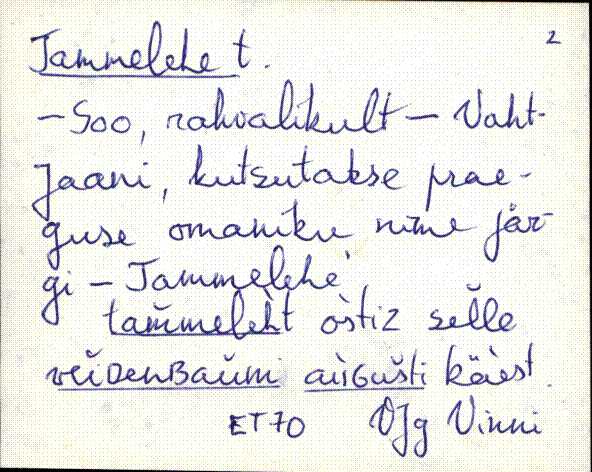 Tammelehe t. 2
– Soo, rahvalikult – Vaht-
Jaani, kutsutakse prae-
guse omaniku nime jär-
gi – Tammelehe
tam̆meleh̀t òstiz sel̆le
veiDenBaŭmi aùGušti käest.
ET70 VJg Vinni